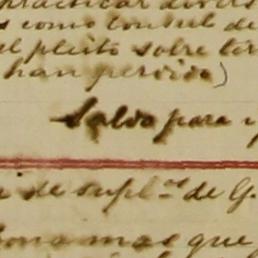 practicar divers
s como Consul de
el pleito sobre tér
han perdido)
Saldo para
de supl.ᵒˢ de G.
ona mas que